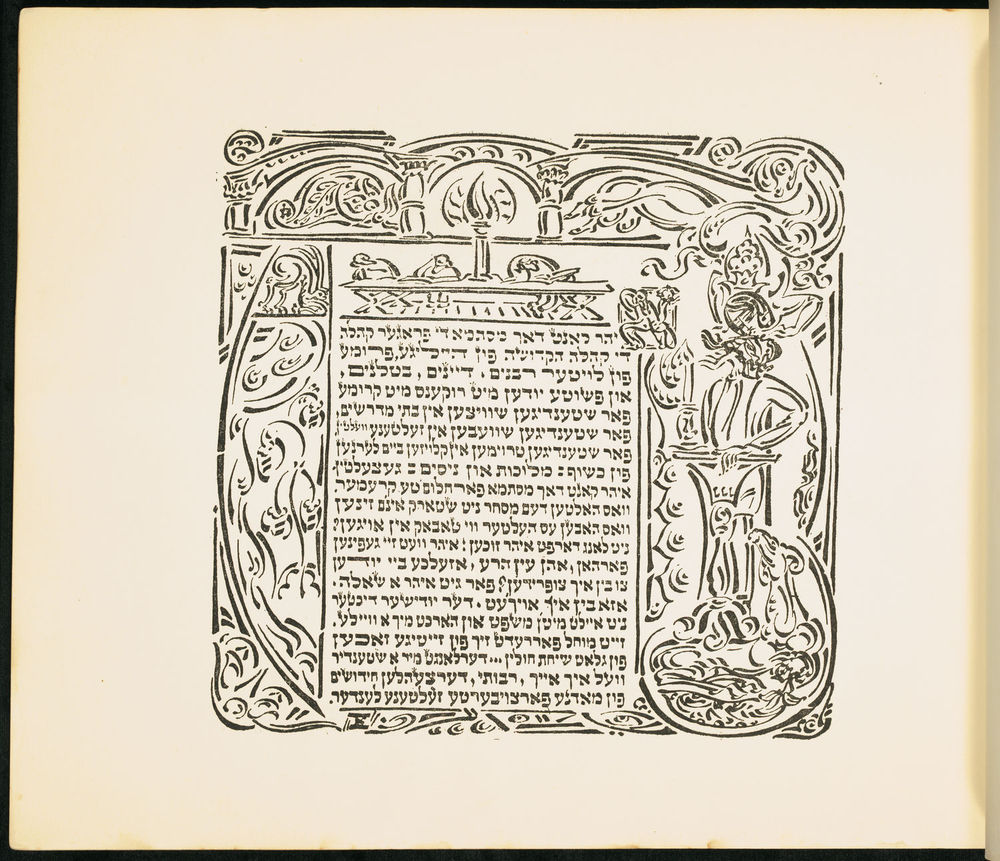 איהר קאנט דאך מסתמא די פראגער קהלה
די קהלה הקדושה פון הייליגע, פרומע
פון לויטער רבנים, דיינים, בטלנים,
און פשוטע יודען מיט רוקענס מיט קרומע
פאר שטענדיגען שוויצען אין בתי מדרשים,
פאר שטענדיגען שוועבען אין זעלטענע וועלטן
פאר שטענדיגען טרוימען אין קלויזען ביים לערנען
פון כשוף: מלוכות און ניסים: געצעלטן.
איהר קאנט דאך מסתמא פאר חלום'טע קרעמער
וואס האלטען דעם מסחר ניט שטארק אינם זינען
וואס האבען עס העלטער ווי טאבאק אין אויגען?
ניט לאנג דארפט איהר זוכען! איהר וועט זיי געפינען
פארהאן, אהן עין הרע, אזעלכע ביי יודען
צו בין איך צופרידען? פאר גיט איהר א שאלה.
אזא בין איך אויך עט. דער יודישער דיכטער
ניט איילט מיטן משפט און הארכט מיך א וויילע.
זייט מוחל פאררעדט זיך פון זייטיגע זאכען
פון גלאט שיחת חולין... דערלאנגט מיר א שטענדיר
וועל איך אייך, רבותי, דערצעהלען חידושים
פון מאדנע פארצויבערטע זעלטענע לענדער